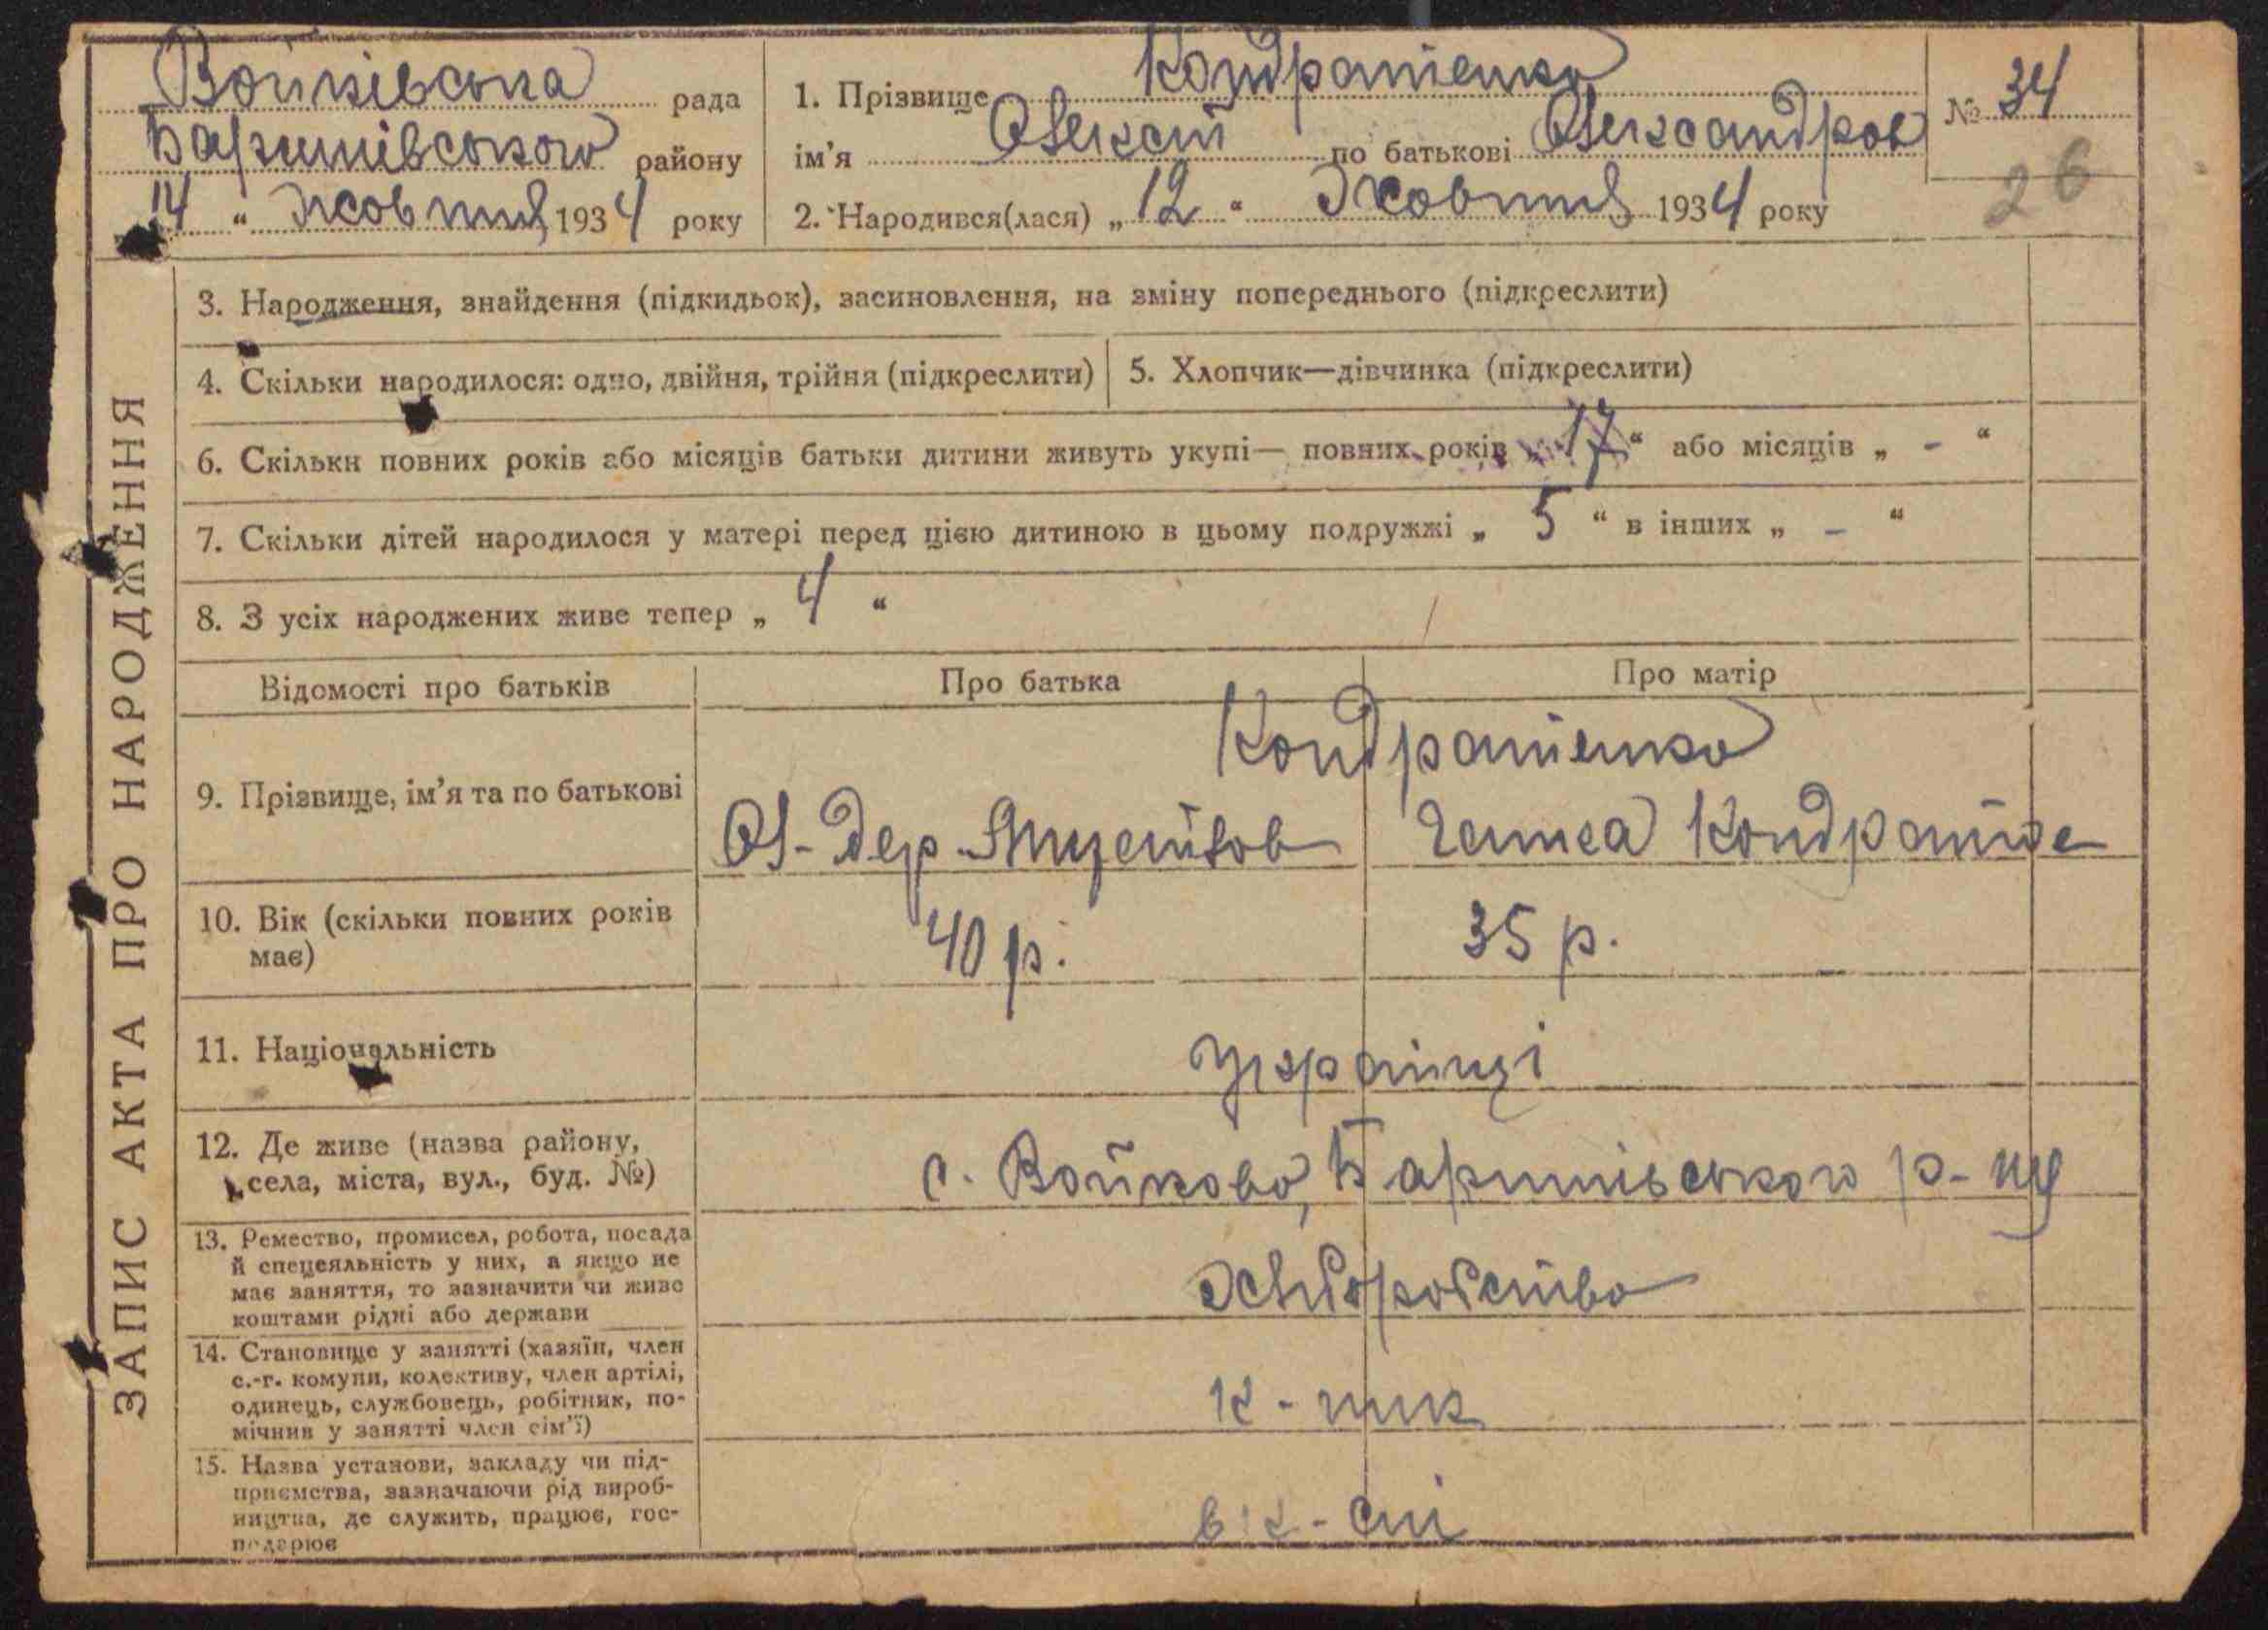 Войківська рада
Баришівського району
14 " Жовтня 1934 року
1. Прізвище Кондратенко
ім'я Олексій по батькові Олександров
2. Народився(лася) „ 12 " Жовтня 1934 року
№ 34
26
ЗАПИС АКТА ПРО НАРОДЖЕННЯ
3. Народження, знайдення (підкидьок), засиновлення, на зміну попереднього (підкреслити)
4. Скільки народилося: одно, двійня, трійня (підкреслити)
5. Хлопчик—дівчинка (підкреслити)
6. Скільки повних років або місяців батьки дитини живуть укупі— повних років „ 17 " або місяців „ - "
7. Скільки дітей народилося у матері перед цією дитиною в цьому подружжі „ 5 " в інших „ - "
8. З усіх народжених живе тепер „ 4 "
Відомості про батьків
Про батька
Про матір
9. Прізвище, ім'я та по батькові
Кондратенко
Ол-дер
Ганна Кондратів
10. Вік (скільки повних років
має)
40 р.
35 р.
11. Національність
Українці
12. Де живе (назва району,
села, міста, вул., буд. №)
с. Войково, Баришівського р-ну
13. Ремество, промисел, робота, посада
й спецеяльність у них, а якщо не
має заняття, то зазначити чи живе
коштами рідні або держави
Хліборобство
14. Становище у занятті (хазяїн, член
с.-г. комуни, колективу, член артілі,
одинець, службовець, робітник, по-
мічник у занятті член сім'ї)
к-ник
15. Назва установи, закладу чи під-
приємства, зазначаючи рід вироб-
ництва, де служить, працює, гос-
подарює
в к-спі